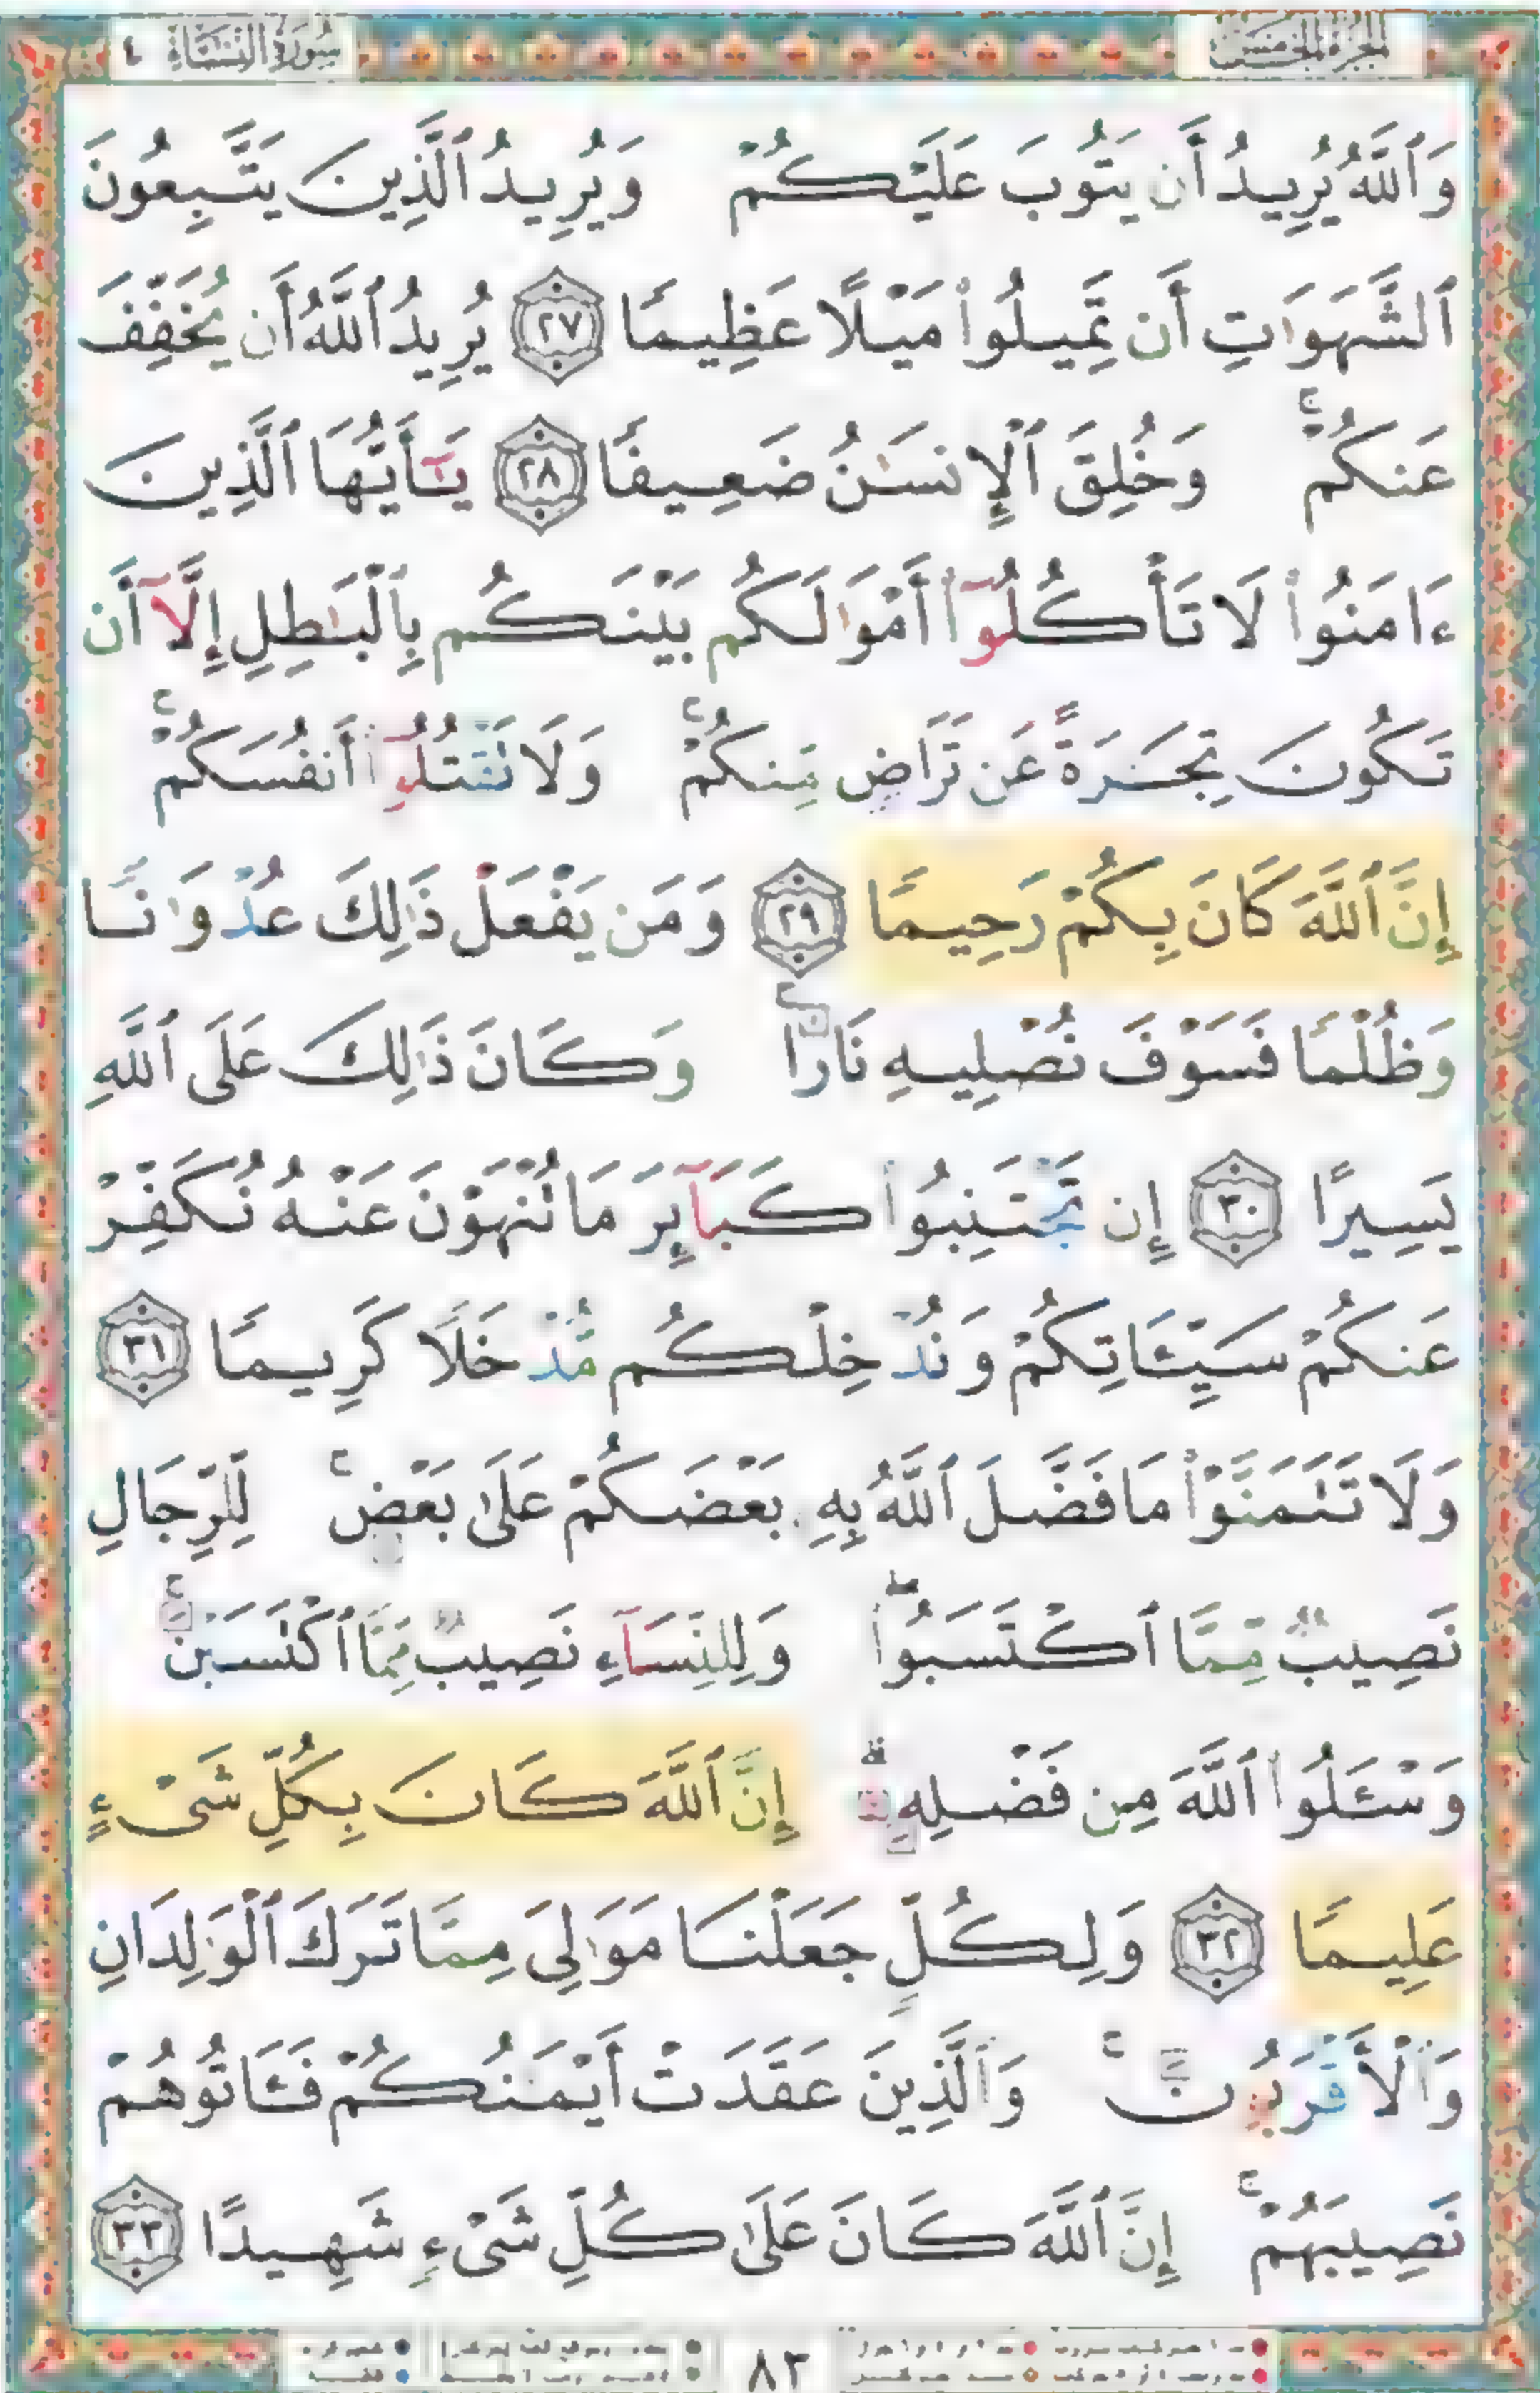 سُورَةُ النِّسَاءِ ٤
الجُزْءُ الخَامِسُ
وَٱللَّهُ يُرِيدُ أَن يَتُوبَ عَلَيْكُمْ وَيُرِيدُ ٱلَّذِينَ يَتَّبِعُونَ
ٱلشَّهَوَٰتِ أَن تَمِيلُوا۟ مَيْلًا عَظِيمًا ٢٧ يُرِيدُ ٱللَّهُ أَن يُخَفِّفَ
عَنكُمْ ۚ وَخُلِقَ ٱلْإِنسَٰنُ ضَعِيفًا ٢٨ يَٰٓأَيُّهَا ٱلَّذِينَ
ءَامَنُوا۟ لَا تَأْكُلُوٓا۟ أَمْوَٰلَكُم بَيْنَكُم بِٱلْبَٰطِلِ إِلَّآ أَن
تَكُونَ تِجَٰرَةً عَن تَرَاضٍ مِّنكُمْ ۚ وَلَا تَقْتُلُوٓا۟ أَنفُسَكُمْ ۚ
إِنَّ ٱللَّهَ كَانَ بِكُمْ رَحِيمًا ٢٩ وَمَن يَفْعَلْ ذَٰلِكَ عُدْوَٰنًا
وَظُلْمًا فَسَوْفَ نُصْلِيهِ نَارًا ۚ وَكَانَ ذَٰلِكَ عَلَى ٱللَّهِ
يَسِيرًا ٣٠ إِن تَجْتَنِبُوا۟ كَبَآئِرَ مَا تُنْهَوْنَ عَنْهُ نُكَفِّرْ
عَنكُمْ سَيِّـَٔاتِكُمْ وَنُدْخِلْكُم مُّدْخَلًا كَرِيمًا ٣١
وَلَا تَتَمَنَّوْا۟ مَا فَضَّلَ ٱللَّهُ بِهِۦ بَعْضَكُمْ عَلَىٰ بَعْضٍ ۚ لِّلرِّجَالِ
نَصِيبٌ مِّمَّا ٱكْتَسَبُوا۟ ۖ وَلِلنِّسَآءِ نَصِيبٌ مِّمَّا ٱكْتَسَبْنَ ۚ
وَسْـَٔلُوا۟ ٱللَّهَ مِن فَضْلِهِۦٓ ۗ إِنَّ ٱللَّهَ كَانَ بِكُلِّ شَىْءٍ
عَلِيمًا ٣٢ وَلِكُلٍّ جَعَلْنَا مَوَٰلِىَ مِمَّا تَرَكَ ٱلْوَٰلِدَانِ
وَٱلْأَقْرَبُونَ ۚ وَٱلَّذِينَ عَقَدَتْ أَيْمَٰنُكُمْ فَـَٔاتُوهُمْ
نَصِيبَهُمْ ۚ إِنَّ ٱللَّهَ كَانَ عَلَىٰ كُلِّ شَىْءٍ شَهِيدًا ٣٣
٨٣